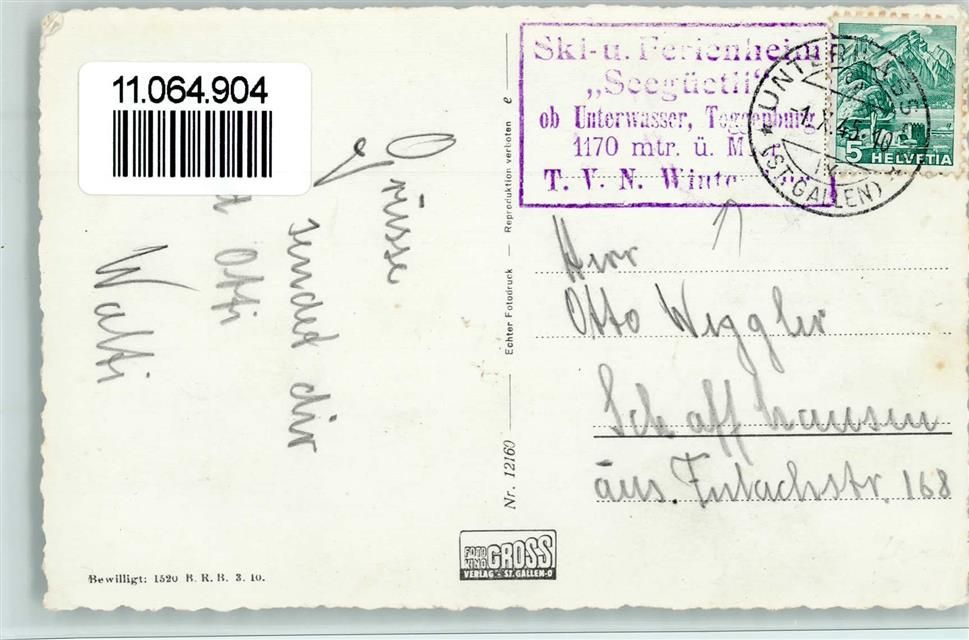 11.064.904
Grüsse
sendet dir
Otti
Walti
Bewilligt: 1520 B. R. B. 3. 10.
Nr. 12160
Echter Fotodruck
Reproduktion verboten
e
FOTO KINO GROSS
VERLAG - ST. GALLEN-O
Ski- u. Ferienheim
„Seegüetli“
ob Unterwasser, Toggenburg
1170 mtr. ü. M.
T. V. N.
(ST. GALLEN)
5 HELVETIA
Herr
Otto Weggler
Schaffhausen
äus. Fulachstr. 168